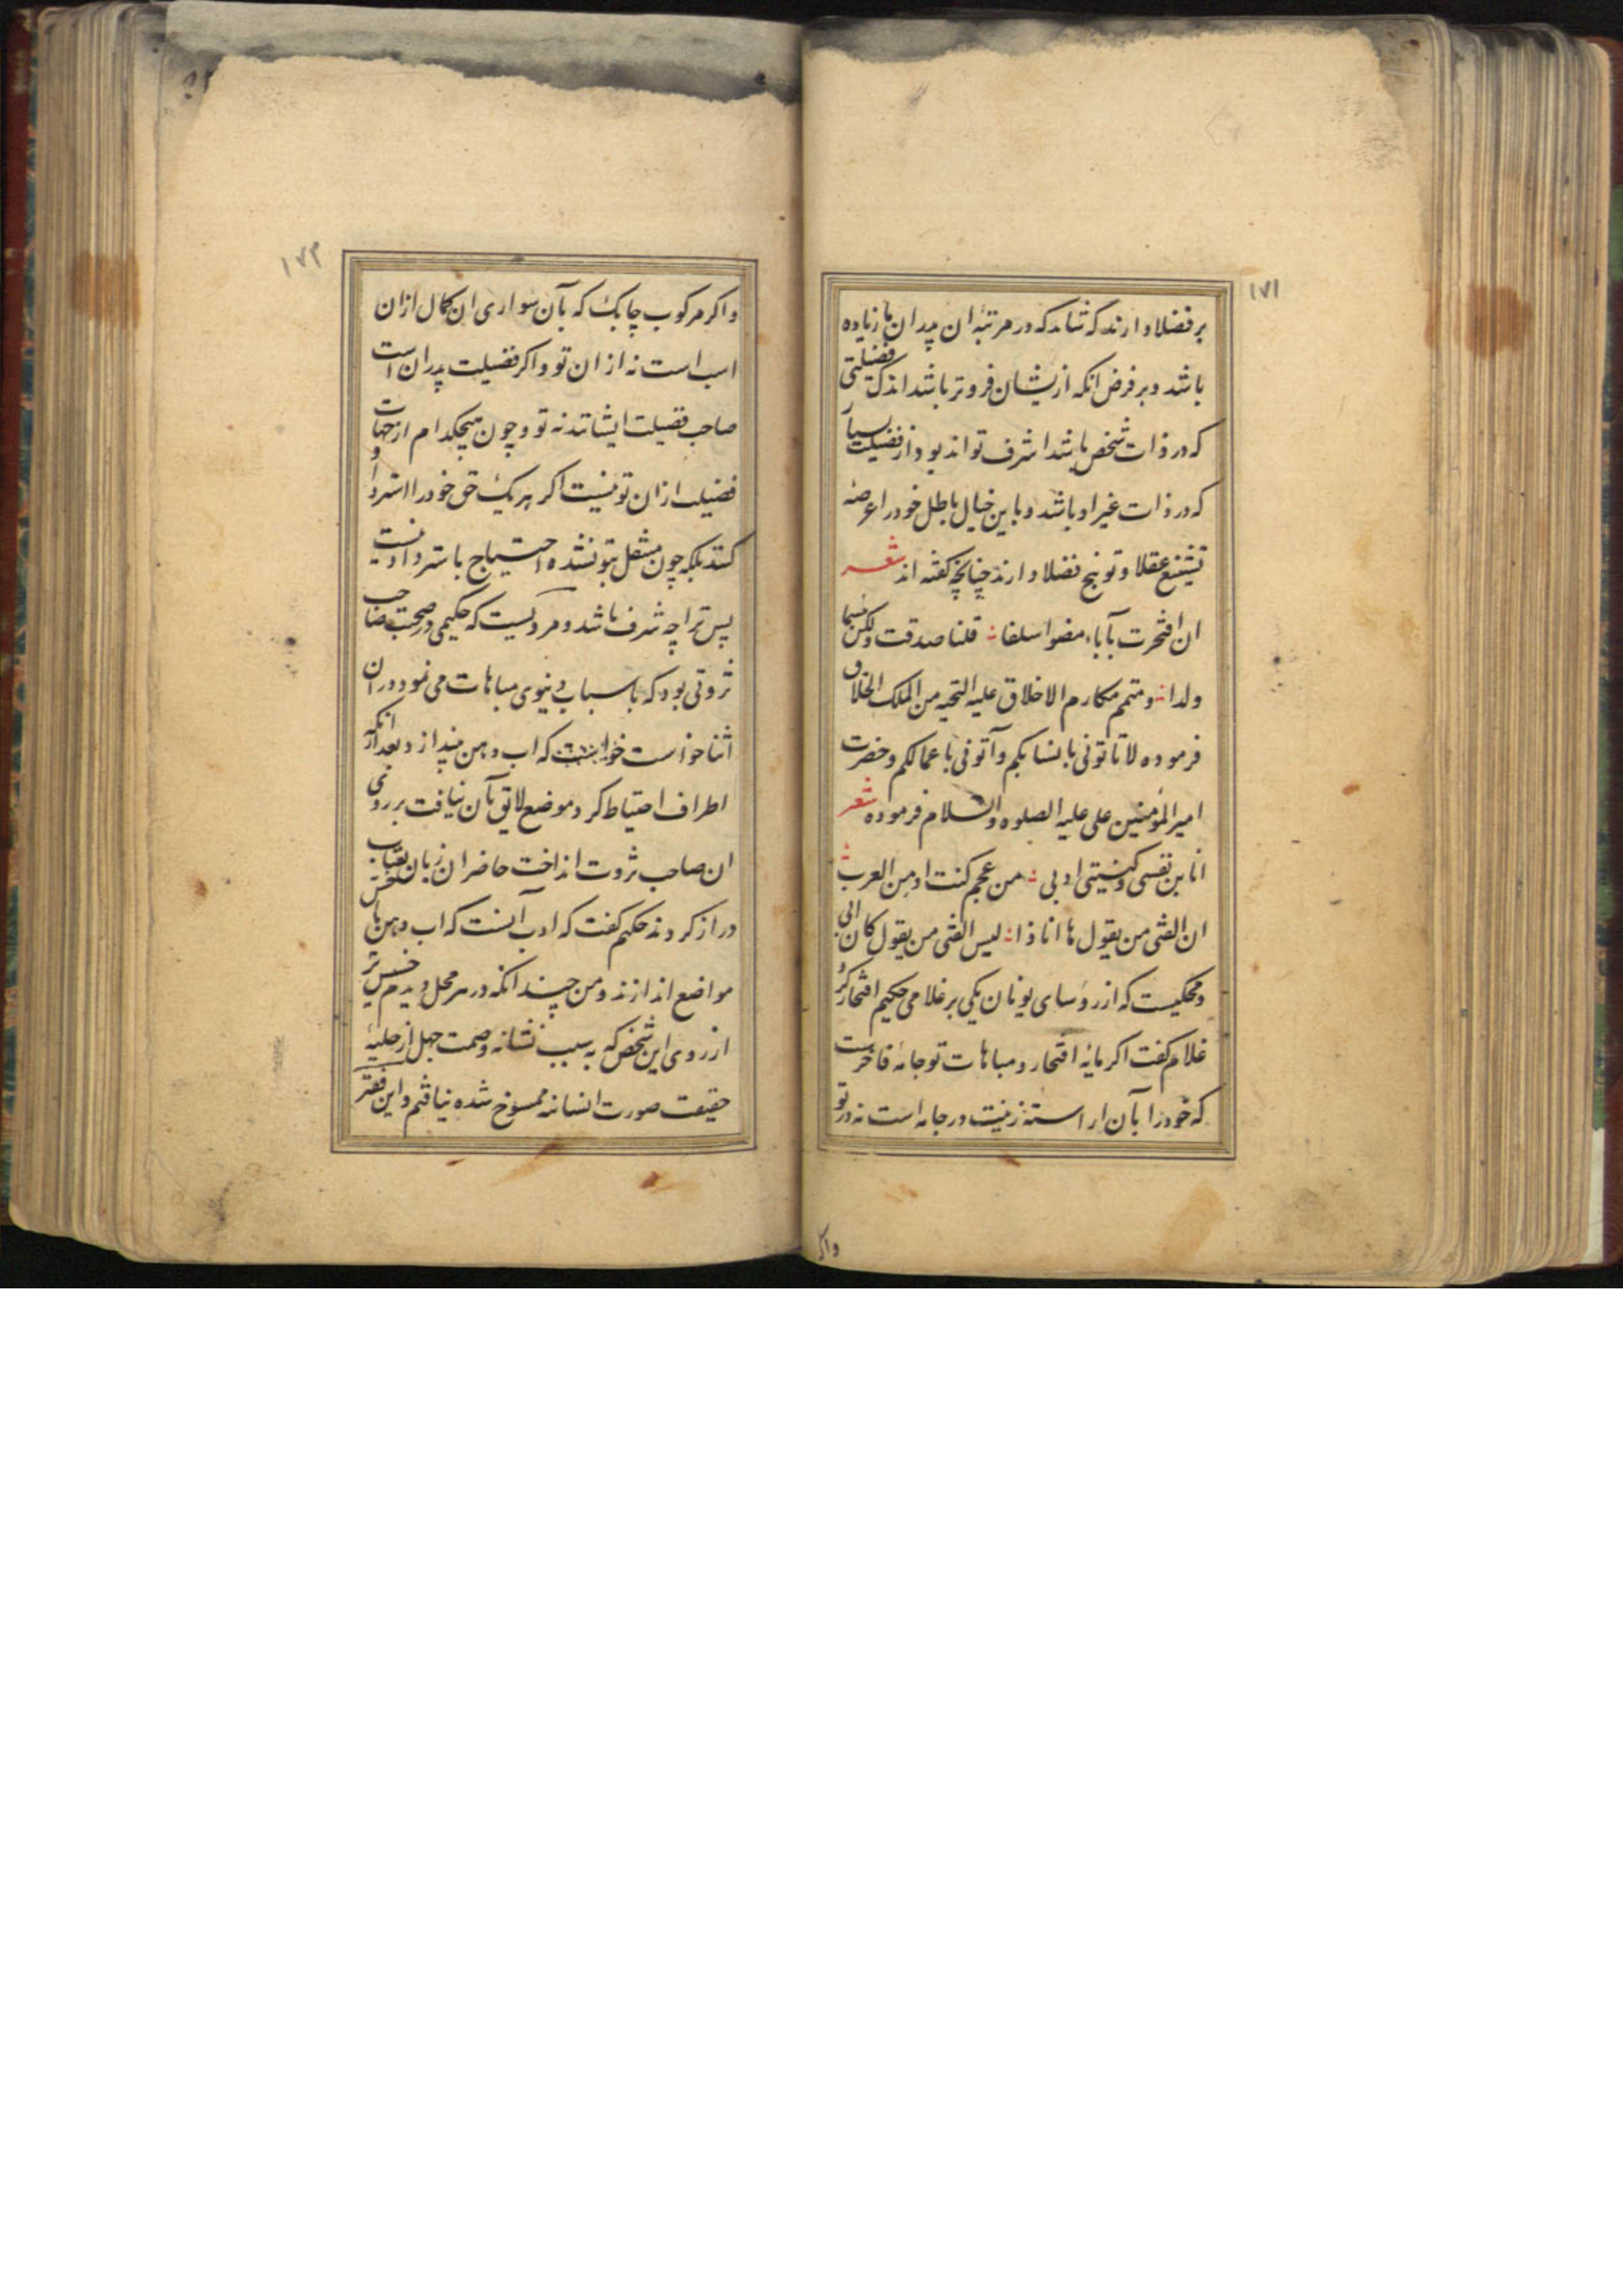 ۱۷۱
بر فضلا دارند که شاید که در مرتبهٔ ان پدران یا زیاده
باشد و بر فرض انکه ازیشان فروتر باشد اندک فضیلتی
که در ذات شخص باشد اشرف تواند بود از فضیلت بسیار
که در ذات غیر او باشد و باین خیال باطل خود را عرضهٔ
تشنیع عقلا و توبیخ فضلا دارند چنانچه کفته اند شعر
ان افتخرت بآباء مضوا سلفا قلنا صدقت ولکن بئسما
ولدا و متمم مکارم الاخلاق علیه التحیه من الملک الخلاق
فرموده لا تاتونی بانسابکم وآتونی باعمالکم و حضرت
امیر المؤمنین علی علیه الصلوه والسلام فرموده شعر
انا بن نفسی وکنیتی ادبی من عجم کنت او من العرب
ان الفتی من یقول ها انا ذا لیس الفتی من یقول کان ابی
و محکیست که از رؤسای یونان یکی بر غلامی حکیم افتخار کرد
غلام کفت اکر مایهٔ افتخار و مباهات تو جامهٔ فاخرست
که خود را بآن اراسته زینت در جامه است نه در تو
واکر
۱۷۲
واکر مرکوب چابک که بآن سواری ان کمال از ان
اسب است نه از ان تو و اکر فضیلت پدران است
صاحب فضیلت ایشانند نه تو و چون هیچکدام از جهات
فضیلت ازان تو نیست اکر هر یک حق خود را استرداد
کنند بلکه چون منتقل بتو نشده احتیاج باسترداد نیست
پس ترا چه شرف باشد و مرویست که حکیمی در صحبت صاحب
ثروتی بود که باسباب دنیوی مباهات می نمود در ان
اثنا خواست که اب دهن بیندازد بعد ازانکه
اطراف احتیاط کرد و موضع لایق بآن نیافت بر روی
ان صاحب ثروت انداخت حاضران زبان بعتاب
دراز کردند حکیم کفت که ادب آنست که اب دهن باخس
مواضع اندازند و من چندانکه در هر محل دیدم خسیس تر
از روی این شخص که به سبب نشانه وصمت جهل از حلیهٔ
حقیقت صورت انسانیه ممسوخ شده نیافتم و این فقیر